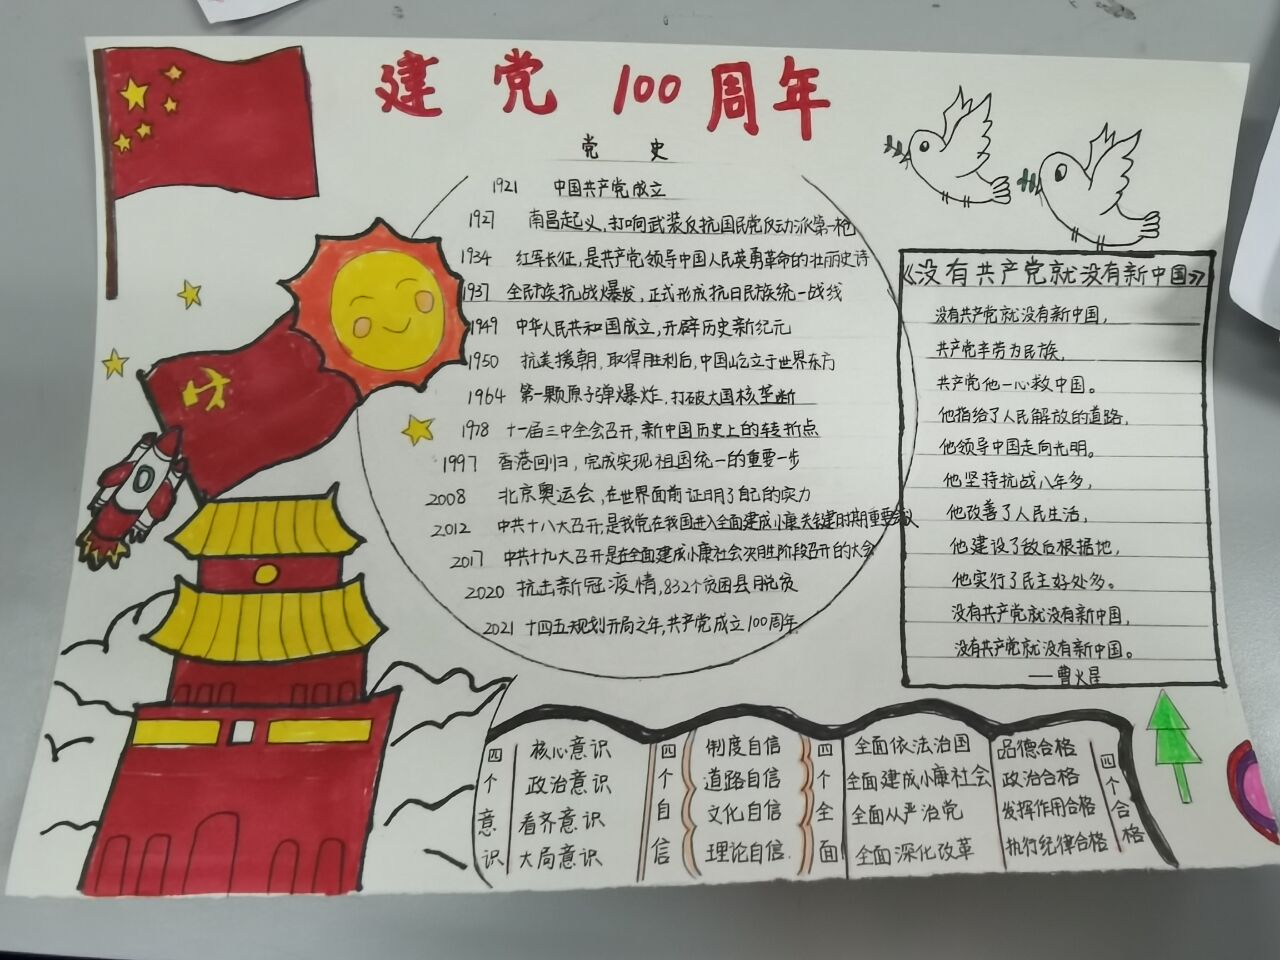 建党100周年
党史
1921 中国共产党成立
1927 南昌起义,打响武装反抗国民党反动派第一枪
1934 红军长征,是共产党领导中国人民英勇革命的壮丽史诗
1937 全民族抗战爆发,正式形成抗日民族统一战线
1949 中华人民共和国成立,开辟历史新纪元
1950 抗美援朝,取得胜利后,中国屹立于世界东方
1964 第一颗原子弹爆炸,打破大国核垄断
1978 十一届三中全会召开,新中国历史上的转折点
1997 香港回归,完成实现祖国统一的重要一步
2008 北京奥运会,在世界面前证明了自己的实力
2012 中共十八大召开,是我党在我国进入全面建成小康关键的时期重要会议
2017 中共十九大召开是在全面建成小康社会决胜阶段召开的大会
2020 抗击新冠疫情,832个贫困县脱贫
2021 十四五规划开局之年,共产党成立100周年
《没有共产党就没有新中国》
没有共产党就没有新中国,
共产党辛劳为民族,
共产党他一心救中国。
他指给了人民解放的道路,
他领导中国走向光明。
他坚持抗战八年多,
他改善了人民生活,
他建设了敌后根据地,
他实行了民主好处多。
没有共产党就没有新中国,
没有共产党就没有新中国。
——曹火星
四个意识
核心意识
政治意识
看齐意识
大局意识
四个自信
制度自信
道路自信
文化自信
理论自信.
四个全面
全面依法治国
全面建成小康社会
全面从严治党
全面深化改革
品德合格
政治合格
发挥作用合格
执行纪律合格
四个合格